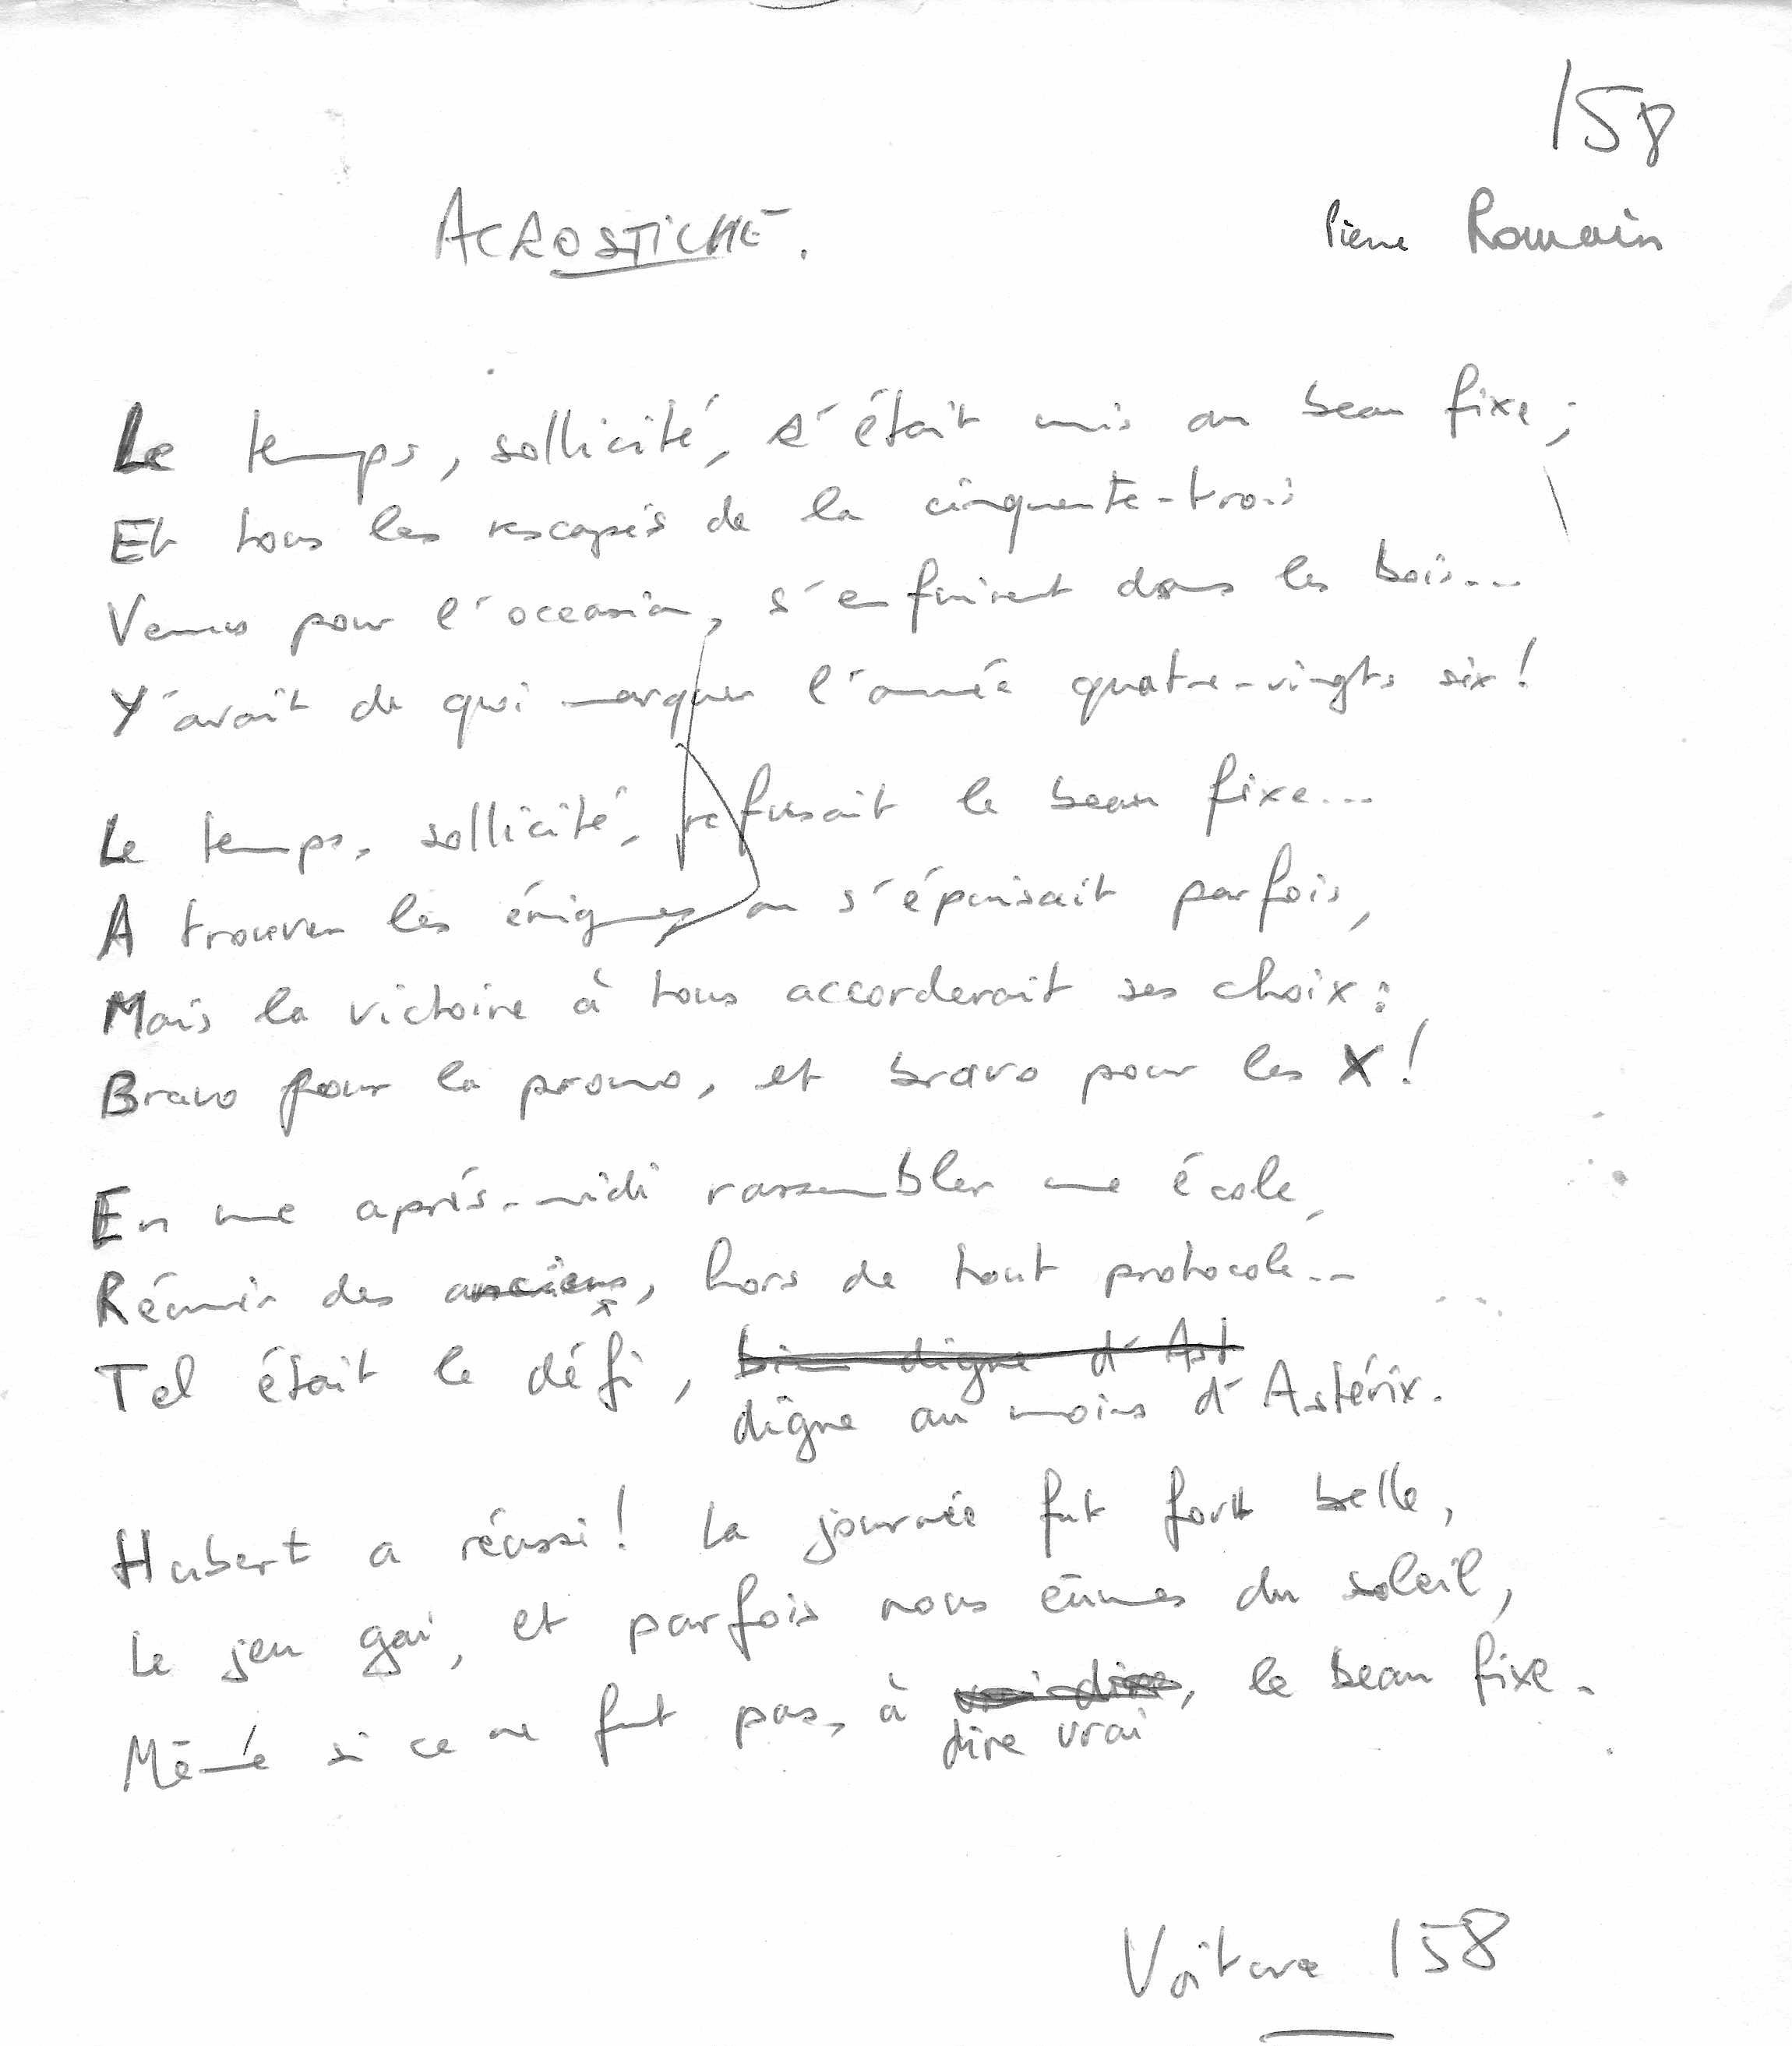 158
ACROSTICHE.
Pierre Romain
Le temps, sollicité, s'était mis au beau fixe ;
Et tous les rescapés de la cinquante-trois
Venus pour l'occasion, s'enfuirent dans les bois...
Y'avait de quoi marquer l'année quatre-vingts six !
Le temps, sollicité, refusait le beau fixe...
A trouver les énigmes on s'épuisait parfois,
Mais la victoire à tous accorderait ses choix :
Bravo pour la promo, et bravo pour les X !
En une après-midi rassembler une école,
Réunir des anciens, hors de tout protocole...
Tel était le défi, bien digne d'Ast
digne au moins d'Astérix.
Hubert a réussi ! La journée fut fort belle,
Le jeu gai, et parfois nous eûmes du soleil,
Même si ce ne fut pas, à vrai dire, le beau fixe.
dire vrai
Voiture 158